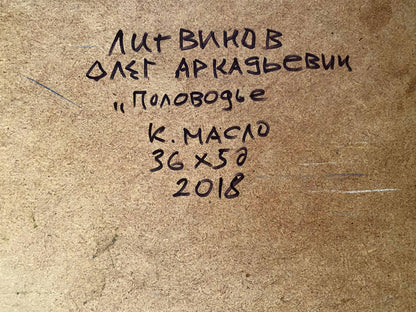 ЛИТВИНОВ
ОЛЕГ АРКАДЬЕВИЧ
„ПОЛОВОДЬЕ
К. МАСЛО
36 х 50
2018